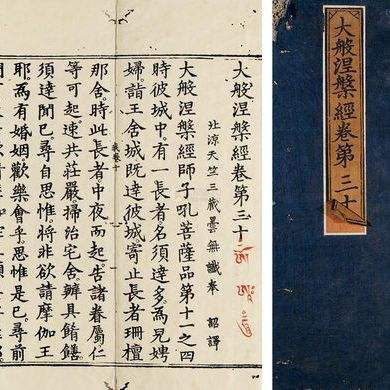 大般涅槃經卷第三十
大般涅槃經卷第三十
北涼天竺三藏曇無讖奉 詔譯
大般涅槃經師子吼菩薩品第十一之四
時彼城中有一長者名須達多為兒娉
婦詣王舍城既達彼城寄止長者珊檀
那舍時此長者中夜而起告諸眷屬仁
等可起速共莊嚴掃治宅舍辦具餚饍
須達聞已尋自思惟將非欲請摩伽王
耶為有婚姻歡樂會乎思惟是已尋前